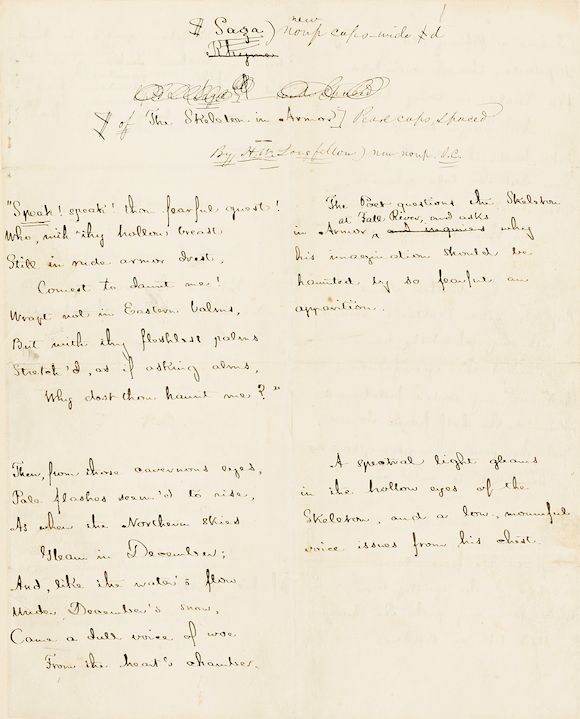 Saga) new nonp caps-wide
Rhyme
of The Skeleton in Armor] Pearl caps, spaced
By H. W. Longfellow) new nonp. s.c.
"Speak! speak! thou fearful guest!
Who, with thy hollow breast
Still in rude armor drest,
Comest to daunt me!
Wrapt not in Eastern balms,
But with thy fleshless palms
Stretch'd, as if asking alms,
Why dost thou haunt me?"
The Poet questions the Skeleton
at Fall River, and asks
in Armor, and inquires why
his imagination should be
haunted by so fearful an
apparition.
Then, from those cavernous eyes,
Pale flashes seem'd to rise,
As when the Northern skies
Gleam in December;
And, like the water's flow
Under December's snow,
Came a dull voice of woe
From the heart's chamber.
A spectral light gleams
in the hollow eyes of the
Skeleton, and a low, mournful
voice issues from his chest.